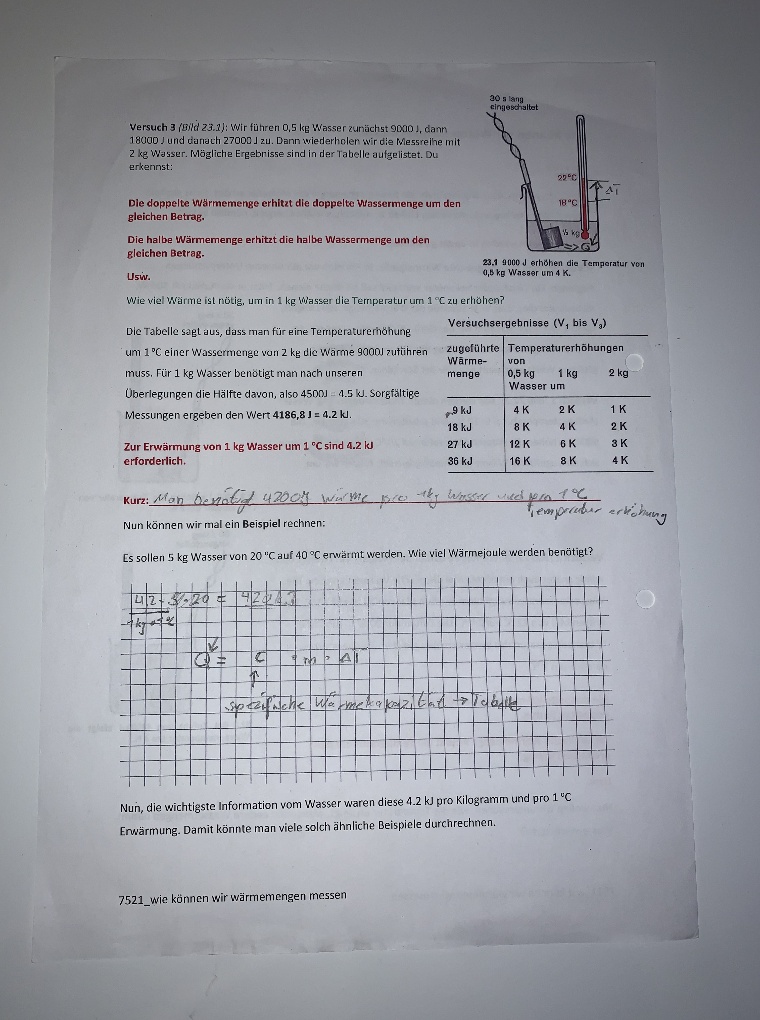 30 s lang
eingeschaltet
Versuch 3 (Bild 23.1): Wir führen 0,5 kg Wasser zunächst 9000 J, dann
18000 J und danach 27000 J zu. Dann wiederholen wir die Messreihe mit
2 kg Wasser. Mögliche Ergebnisse sind in der Tabelle aufgelistet. Du
erkennst:
22°C
ΔT
18°C
½ kg
Q
Die doppelte Wärmemenge erhitzt die doppelte Wassermenge um den
gleichen Betrag.
Die halbe Wärmemenge erhitzt die halbe Wassermenge um den
gleichen Betrag.
Usw.
23.1 9000 J erhöhen die Temperatur von
0,5 kg Wasser um 4 K.
Wie viel Wärme ist nötig, um in 1 kg Wasser die Temperatur um 1 °C zu erhöhen?
Die Tabelle sagt aus, dass man für eine Temperaturerhöhung
um 1 °C einer Wassermenge von 2 kg die Wärme 9000J zuführen
muss. Für 1 kg Wasser benötigt man nach unseren
Überlegungen die Hälfte davon, also 4500J = 4.5 kJ. Sorgfältige
Messungen ergeben den Wert 4186,8 J = 4.2 kJ.
Zur Erwärmung von 1 kg Wasser um 1 °C sind 4.2 kJ
erforderlich.
Versuchsergebnisse (V₁ bis V₃)
zugeführte Temperaturerhöhungen
Wärme- von
menge 0,5 kg 1 kg 2 kg
Wasser um
9 kJ 4 K 2 K 1 K
18 kJ 8 K 4 K 2 K
27 kJ 12 K 6 K 3 K
36 kJ 16 K 8 K 4 K
Kurz: Man benötigt 4200J Wärme pro 1kg Wasser und pro 1°C
Temperatur erhöhung
Nun können wir mal ein Beispiel rechnen:
Es sollen 5 kg Wasser von 20 °C auf 40 °C erwärmt werden. Wie viel Wärmejoule werden benötigt?
4,2 · 5 · 20 = 420kJ
1kg · 1°C
Q = C · m · ΔT
spezifische Wärmekapazität → Tabelle
Nun, die wichtigste Information vom Wasser waren diese 4.2 kJ pro Kilogramm und pro 1 °C
Erwärmung. Damit könnte man viele solch ähnliche Beispiele durchrechnen.
7521_wie können wir wärmemengen messen